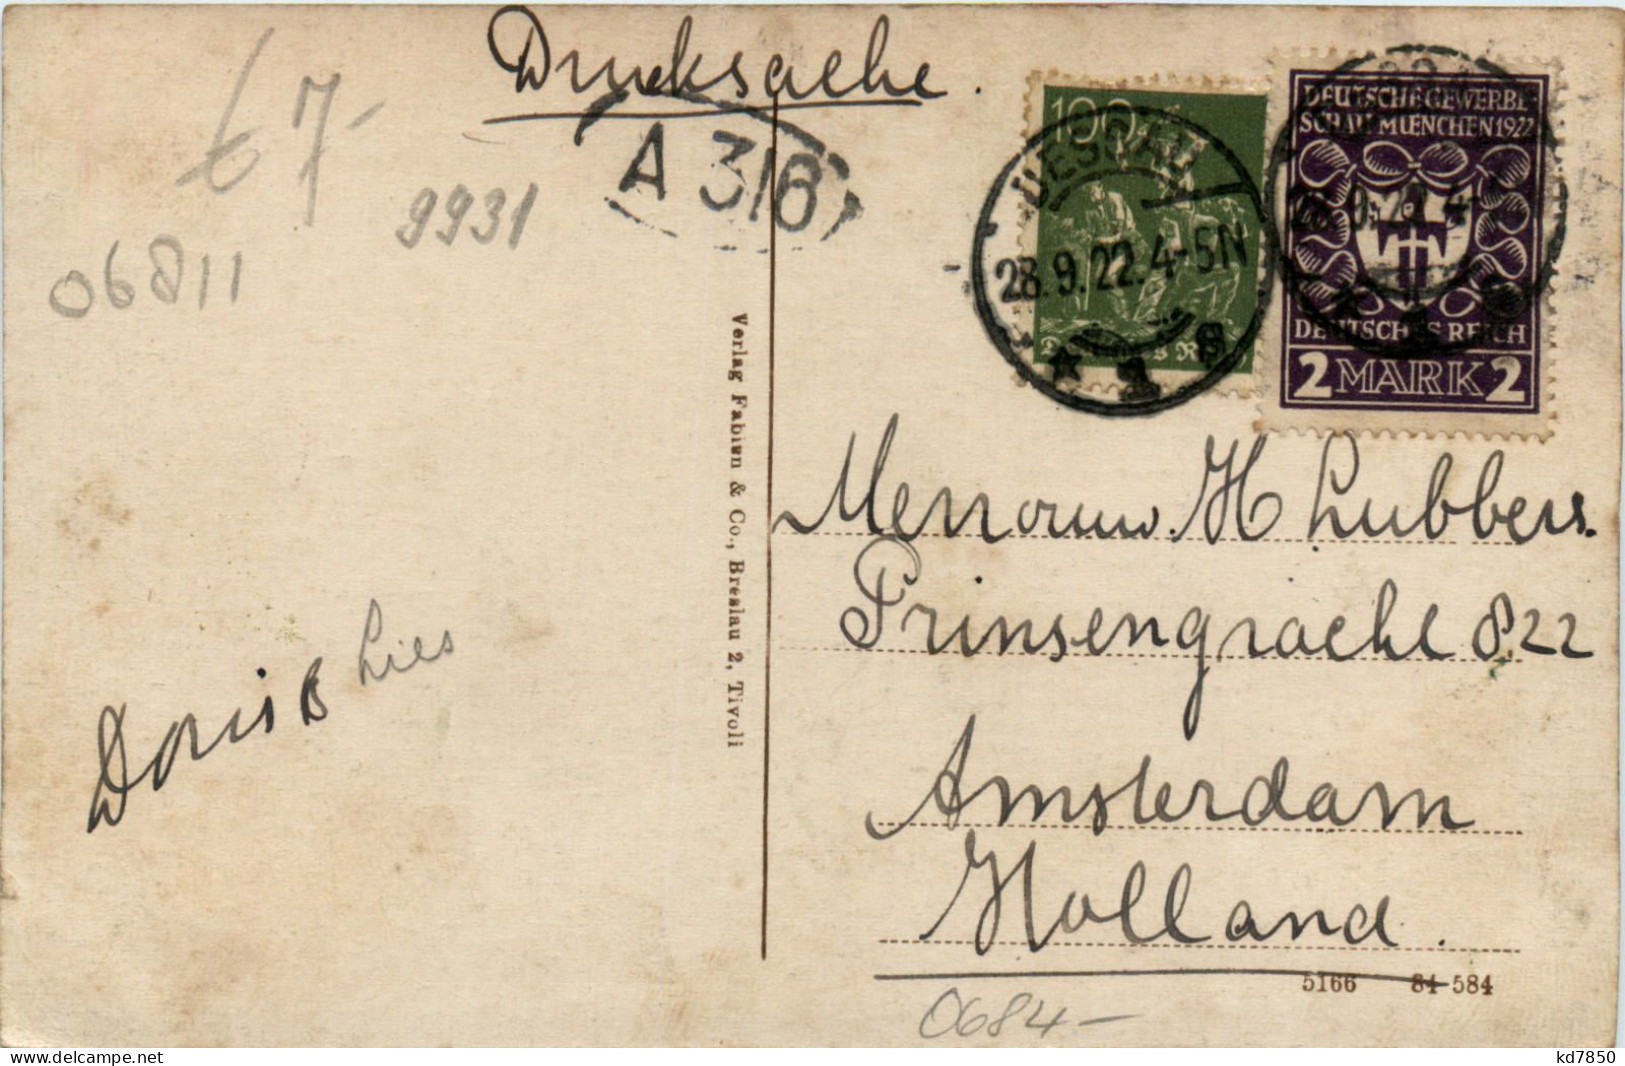 Drucksache.
t 7-
A 316
9931
06811
100
DESSAU
28.9.22.4-5N
* 1
DEUTSCHE GEWERBE-
SCHAU MUENCHEN 1922
DEUTSCHES REICH
2 MARK 2
Verlag Fabian & Co., Breslau 2, Tivoli
Mevrouw. H Lubbers.
Prinsengracht 822
Amsterdam
Holland.
Doris B Lies
5166 84 584
0684-
www.delcampe.net
kd7850